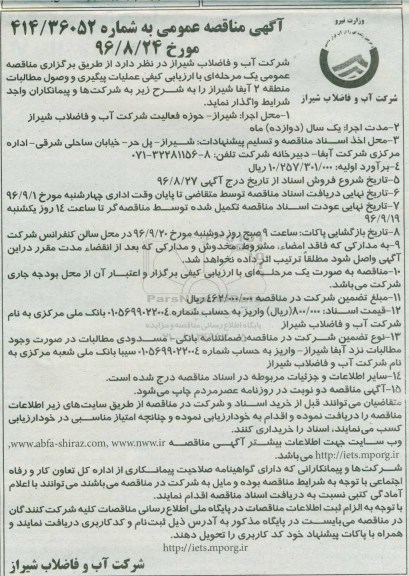 وزارت نیرو
شرکت آب و فاضلاب شیراز
آگهی مناقصه عمومی به شماره ۴۱۴/۳۶۰۵۲
مورخ ۹۶/۸/۲۴
شرکت آب و فاضلاب شیراز در نظر دارد از طریق برگزاری مناقصه
عمومی یک مرحله‌ای با ارزیابی کیفی عملیات پیگیری و وصول مطالبات
منطقه ۲ آبفا شیراز را به شرح زیر به شرکت‌ها و پیمانکاران واجد
شرایط واگذار نماید.
۱-محل اجرا: شیراز- حوزه فعالیت شرکت آب و فاضلاب شیراز
۲-مدت اجرا: یک سال (دوازده) ماه
۳-محل اخذ اسناد مناقصه و تسلیم پیشنهادات: شیراز- پل حر- خیابان ساحلی شرقی- اداره
مرکزی شرکت آبفا- دبیرخانه شرکت تلفن: ۸-۳۲۲۸۱۱۵۶-۰۷۱
۴-برآورد اولیه: ۱۰/۲۵۷/۳۰۱/۰۰۰ ریال
۵-تاریخ شروع فروش اسناد از تاریخ درج آگهی ۹۶/۸/۲۷
۶-تاریخ نهایی دریافت اسناد مناقصه توسط متقاضی تا پایان وقت اداری چهارشنبه مورخ ۹۶/۹/۱
۷-تاریخ نهایی عودت اسناد مناقصه تکمیل شده توسط مناقصه گر تا ساعت ۱۴ روز یکشنبه
۹۶/۹/۱۹
۸-تاریخ بازگشایی پاکات: ساعت ۹ صبح روز دوشنبه مورخ ۹۶/۹/۲۰ در محل سالن کنفرانس شرکت
۹-به مدارکی که فاقد امضاء، مشروط مخدوش و مدارکی که بعد از انقضاء مدت مقرر دراین
آگهی واصل شود مطلقاً ترتیب اثر داده نخواهد شد.
۱۰-مناقصه به صورت یک مرحله‌ای با ارزیابی کیفی برگزار و اعتبار آن از محل بودجه جاری
شرکت می‌باشد.
۱۱-مبلغ تضمین شرکت در مناقصه ۴۶۲/۰۰۰/۰۰۰ ریال
۱۲-قیمت اسناد: ۸۰۰/۰۰۰(ریال) واریز به حساب شماره ۰۱۰۵۶۹۹۰۲۲۰۰۴ بانک ملی مرکزی به نام
شرکت آب و فاضلاب شیراز
۱۳-نوع تضمین شرکت در مناقصه: ضمانتنامه بانکی- مسدودی مطالبات در صورت وجود
مطالبات نزد آبفا شیراز- واریز به حساب شماره ۰۱۰۵۶۹۹۰۲۲۰۰۴ سیبا بانک ملی شعبه مرکزی به
نام شرکت آب و فاضلاب شیراز
۱۴-سایر اطلاعات و جزئیات مربوطه در اسناد مناقصه درج شده است.
۱۵-آگهی مناقصه دو نوبت در روزنامه عصرمردم چاپ می‌شود.
متقاضیان می‌توانند قبل از خرید اسناد و شرکت در مناقصه از طریق سایت‌های زیر اطلاعات
مناقصه را دریافت نموده و اقدام به خودارزیابی نموده و چنانچه امتیاز مناسبی در خودارزیابی
کسب می‌نمایند، اسناد را خریداری کنند.
وب سایت جهت اطلاعات بیشتر آگهی مناقصه www.abfa-shiraz.com, www.nww.ir,
http://iets.mporg.ir می‌باشد.
شرکت‌ها و پیمانکارانی که دارای گواهینامه صلاحیت پیمانکاری از اداره کل تعاون کار و رفاه
اجتماعی با توجه به شرایط مناقصه بوده و مایل به شرکت در مناقصه می‌باشند می‌توانند با اعلام
آمادگی کتبی نسبت به دریافت اسناد مناقصه اقدام نمایند.
با توجه به الزام ثبت اطلاعات مناقصات در پایگاه ملی اطلاع رسانی مناقصات کلیه شرکت کنندگان
در مناقصه می‌بایست در پایگاه مذکور به آدرس ذیل ثبت‌نام و کد کاربری دریافت نمایند و
همراه با پاکات پیشنهاد خود کد کاربری را تحویل دهند.
http://iets.mporg.ir
شرکت آب و فاضلاب شیراز